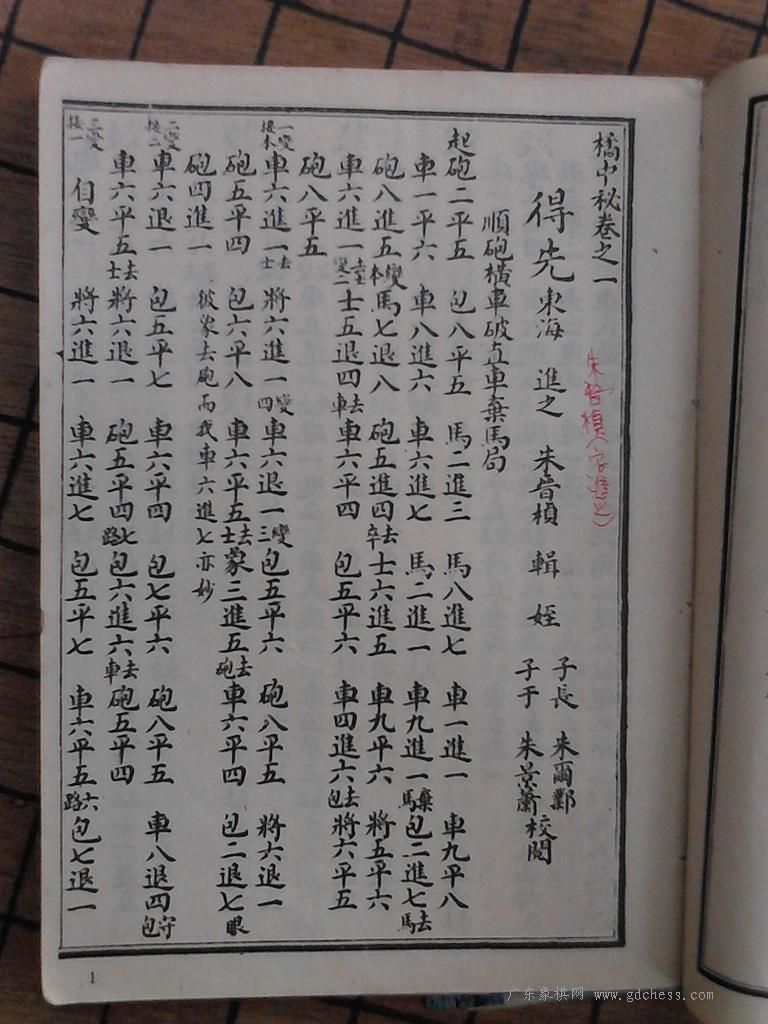 橘中秘卷之一
得先 東海 進之 朱晉楨 輯 姪 子長 朱爾鄴 子于 朱景蕭 校閱
朱晉楨(字進之)
順砲橫車破直車棄馬局
起砲二平五 包八平五 馬二進三 馬八進七 車一進一 車九平八
車一平六 車八進六 車六進七 馬二進一 車九進一棄馬 包二進七去馬
砲八進五變本 馬七退八 砲五進四去卒 士六進五 車九平六 將五平六
車六進一去士變二 士五退四去車 車六平四 包五平六 車四進六去包 將六平五
砲八平五
一變接本 車六進一去士 將六進一變四 車六退一變三 包五平六 砲八平五 將六退一
砲五平四 包六平八 車六平五去士 象三進五去砲 車六平四 包二退七眼
砲四進一 彼象去砲而我車六進七亦妙
二變接二 車六退一 包五平七 車六平四 包七平六 砲八平五 車八退四守包
車六平五去士 將六退一 砲五平四七路 包六進六去車 砲五平四
三變接一 自變 將六進一 車六進七 包五平七 車六平五六路 包七退一
1
广东象棋网 www.gdchess.com